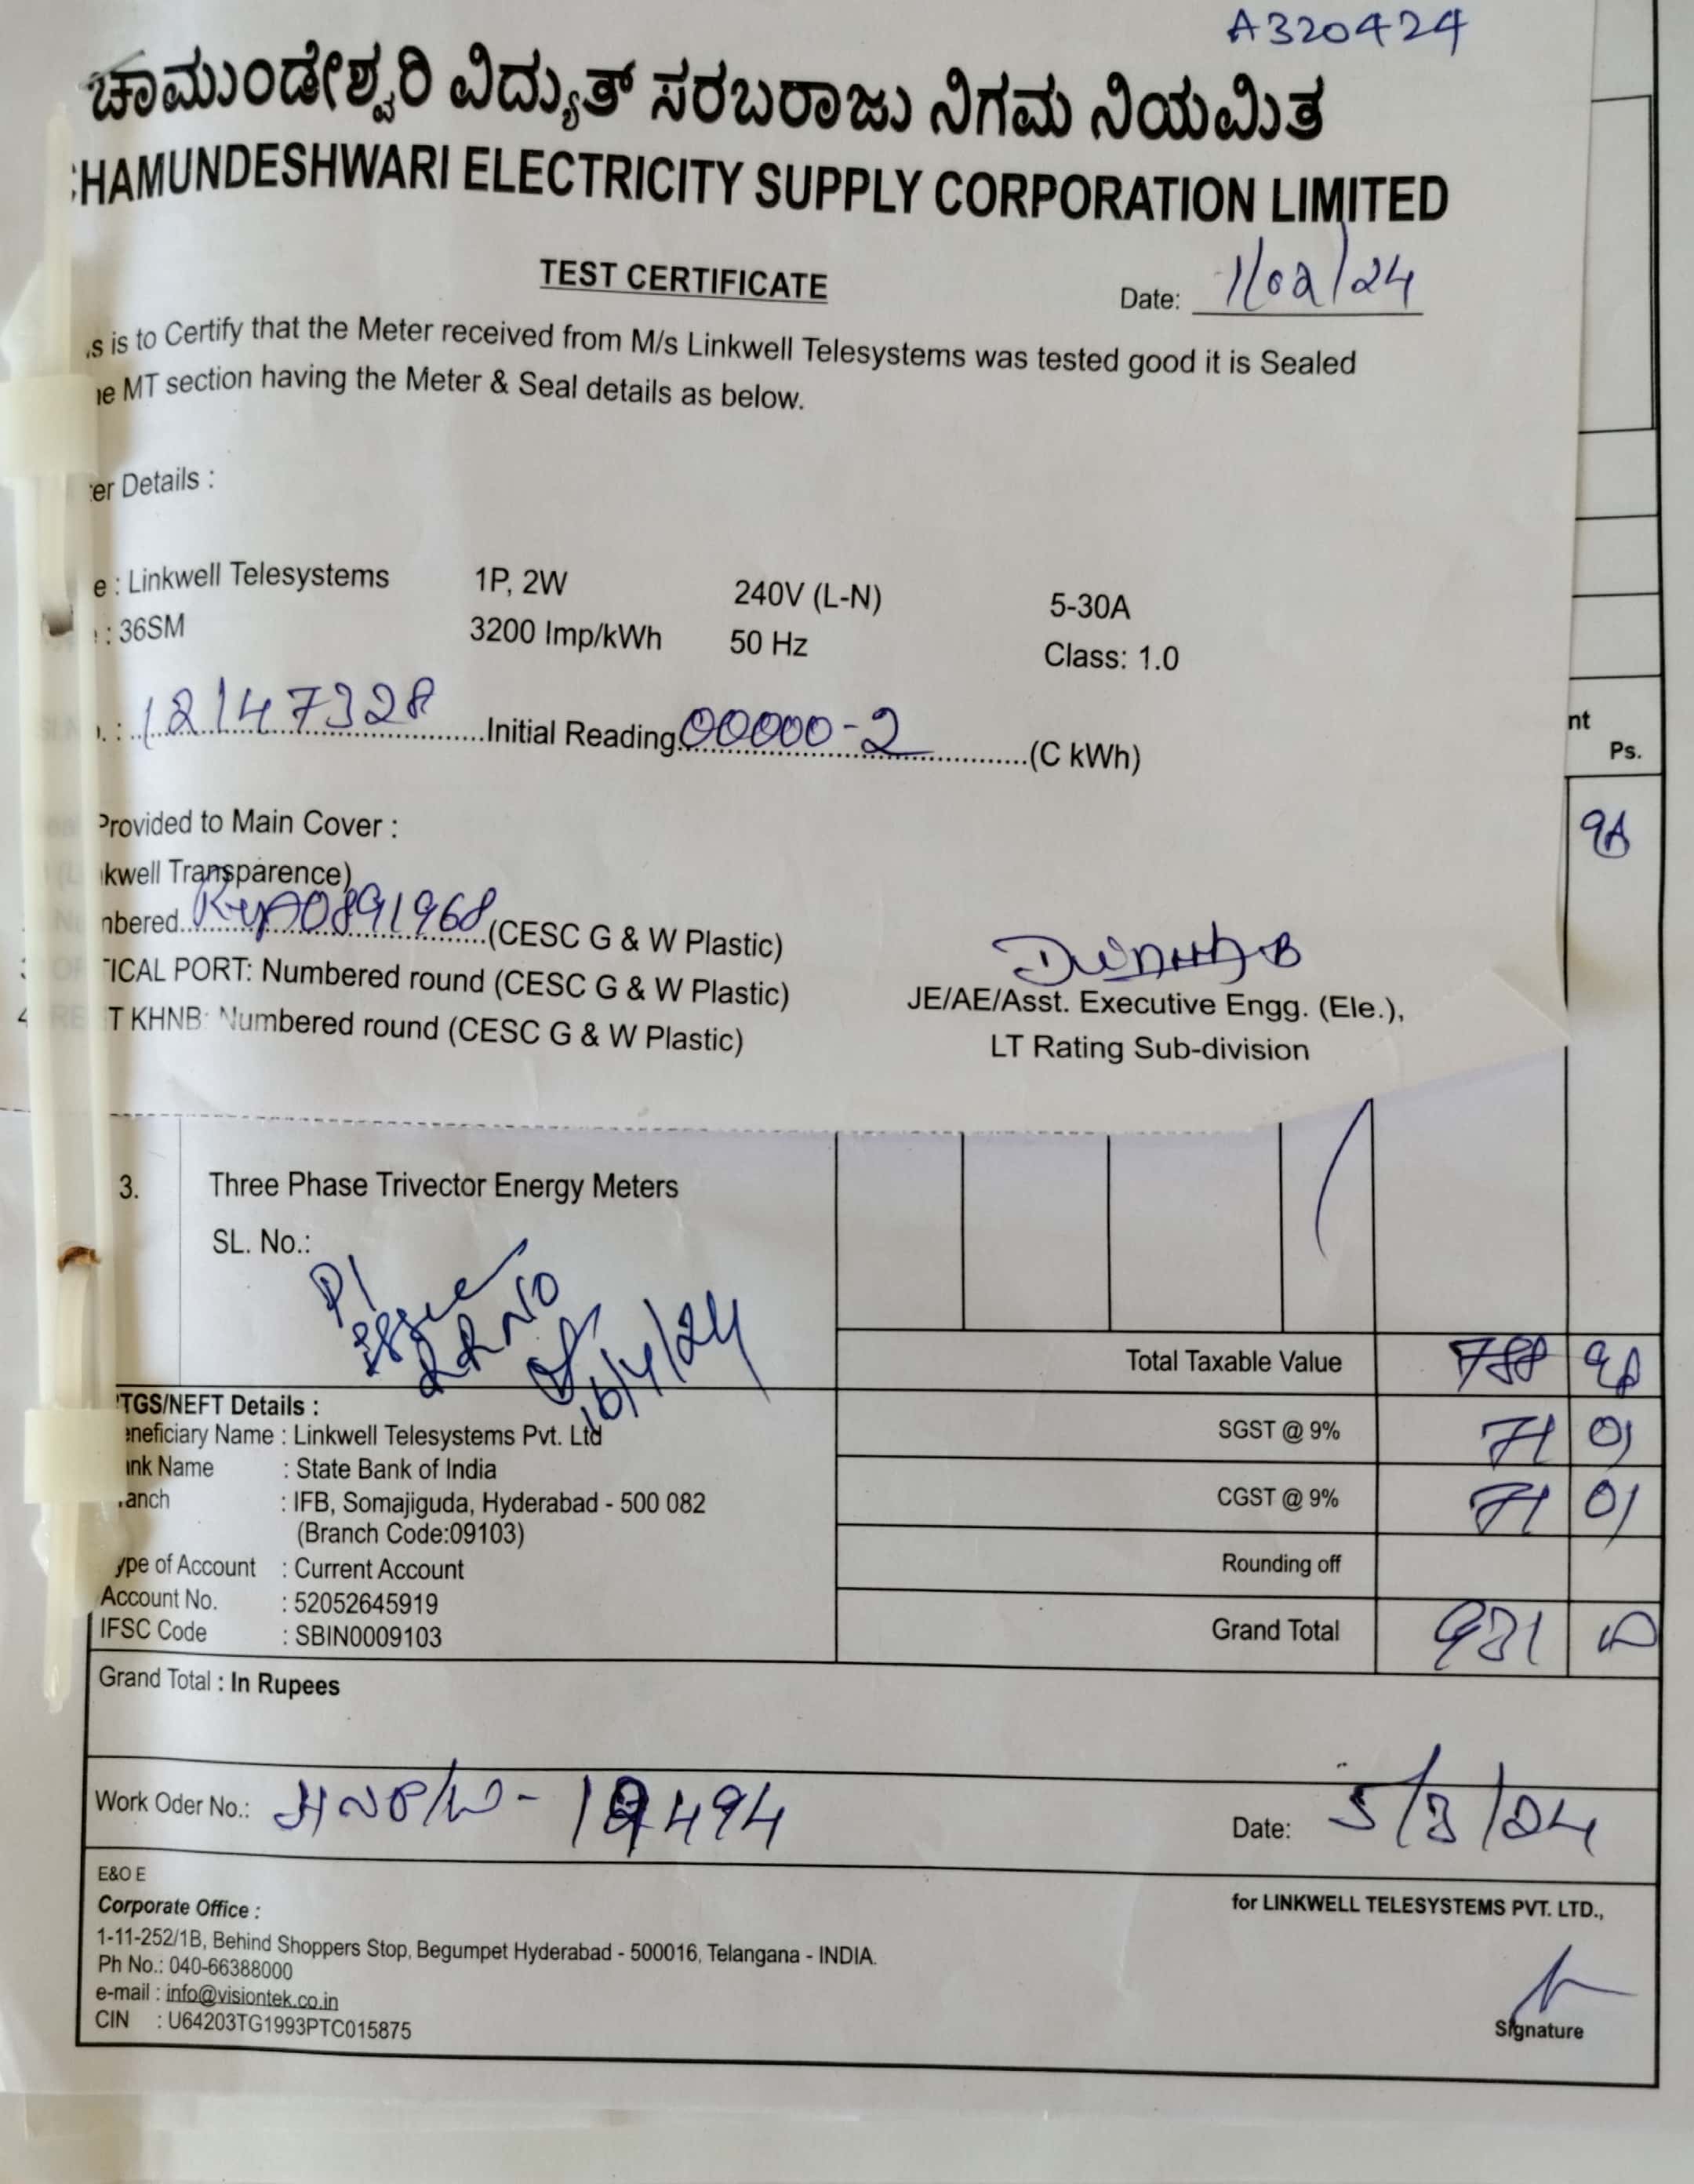 A320424
ಚಾಮುಂಡೇಶ್ವರಿ ವಿದ್ಯುತ್ ಸರಬರಾಜು ನಿಗಮ ನಿಯಮಿತ
HAMUNDESHWARI ELECTRICITY SUPPLY CORPORATION LIMITED
TEST CERTIFICATE
Date: 1/02/24
s is to Certify that the Meter received from M/s Linkwell Telesystems was tested good it is Sealed
e MT section having the Meter & Seal details as below.
er Details :
e : Linkwell Telesystems 1P, 2W 240V (L-N) 5-30A
: 36SM 3200 Imp/kWh 50 Hz Class: 1.0
. : 12147328 Initial Reading 00000-2 (C kWh)
nt
Ps.
Provided to Main Cover :
kwell Transparence)
nbered 0891968 (CESC G & W Plastic)
TICAL PORT: Numbered round (CESC G & W Plastic)
T KHNB: Numbered round (CESC G & W Plastic)
JE/AE/Asst. Executive Engg. (Ele.),
LT Rating Sub-division
3. Three Phase Trivector Energy Meters
SL. No.:
Pl
issue
RR NO
16/4/24
Total Taxable Value 788 98
SGST @ 9% 71 01
CGST @ 9% 71 01
Rounding off
Grand Total 931 00
TGS/NEFT Details :
eneficiary Name : Linkwell Telesystems Pvt. Ltd
ank Name : State Bank of India
ranch : IFB, Somajiguda, Hyderabad - 500 082
(Branch Code:09103)
ype of Account : Current Account
Account No. : 52052645919
IFSC Code : SBIN0009103
Grand Total : In Rupees
Work Oder No.: 12494
Date: 5/3/24
E&O E
Corporate Office :
1-11-252/1B, Behind Shoppers Stop, Begumpet Hyderabad - 500016, Telangana - INDIA.
Ph No.: 040-66388000
e-mail : info@visiontek.co.in
CIN : U64203TG1993PTC015875
for LINKWELL TELESYSTEMS PVT. LTD.,
Signature